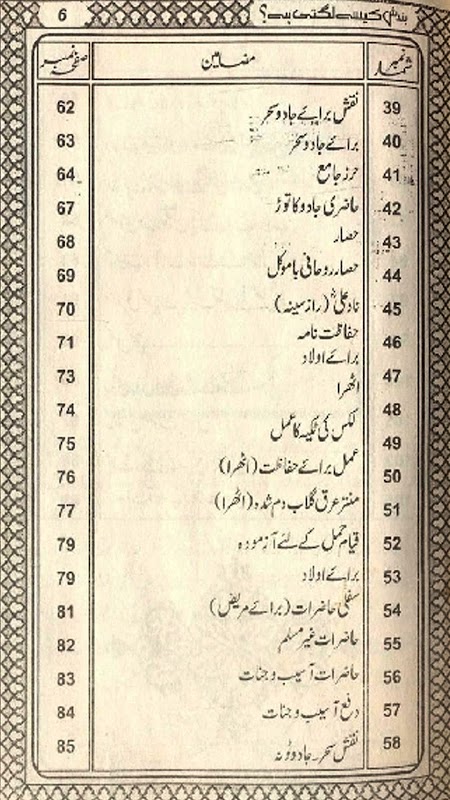 بندش کیسے لگتی ہے؟ 6
نمبر شمار مضامین صفحہ نمبر
39 نقش برائے جادو سحر 62
40 برائے جادو سحر 63
41 حرز جامع 64
42 حاضری جادو کا توڑ 67
43 حصار 68
44 حصار روحانی با موکل 69
45 ناد علیؑ (راز سینہ) 70
46 حفاظت نامہ 71
47 برائے اولاد 73
48 اٹھرا 74
49 لکس کی ٹکیہ کا عمل 75
50 عمل برائے حفاظت (اٹھرا) 76
51 منتر عرق گلاب دم شدہ (اٹھرا) 77
52 قیام حمل کے لئے آزمودہ 79
53 برائے اولاد 79
54 سفلی حاضرات (برائے مریض) 81
55 حاضرات غیر مسلم 82
56 حاضرات آسیب و جنات 83
57 دفع آسیب و جنات 84
58 نقش سحر۔جادو ٹونہ 85